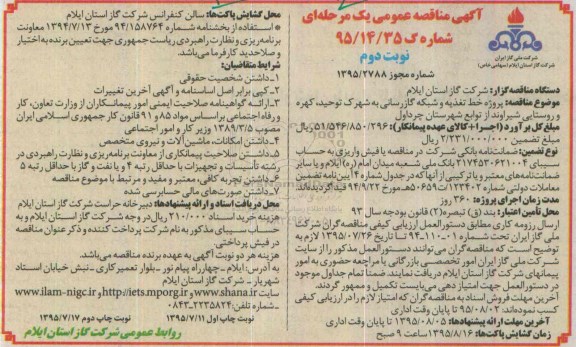 آگهی مناقصه عمومی یک مرحله‌ای
شماره ک ۹۵/۱۴/۳۵
نوبت دوم
شماره مجوز ۱۳۹۵/۲۷۸۸
شرکت ملی گاز ایران
شرکت گاز استان ایلام (سهامی خاص)
دستگاه مناقصه گزار: شرکت گاز استان ایلام
موضوع مناقصه: پروژه خط تغذیه و شبکه گازرسانی به شهرک توحید، کهره
و روستایی شیراوند از توابع شهرستان چرداول
مبلغ کل برآورد (اجرا+کالای عهده پیمانکار): ۵۱/۵۴۶/۸۵۰/۲۹۶ ریال
مبلغ تضمین ۲/۲۳۱/۰۰۰/۰۰۰ ریال
نوع تضمین: ضمانتنامه بانکی شرکت در مناقصه یا فیش واریزی به حساب
سیبای ۲۱۷۴۵۳۰۶۲۱۰۰۴ بانک ملی شعبه میدان امام (ره) ایلام و یا سایر
ضمانتنامه‌های معتبر و یا ترکیبی از آنها که در جدول شماره ۴ آیین‌نامه تضمین
معاملات دولتی شماره ۱۲۳۴۰۲/ت۵۰۶۵۹ه مورخ ۹۴/۹/۲۲ قید گردیده‌اند.
مدت زمان اجرای پروژه: ۳۶۰ روز
محل تأمین اعتبار: بند (ق) تبصره (۲) قانون بودجه سال ۹۳
ارسال رزومه کاری مطابق دستورالعمل ارزیابی کیفی مناقصه‌گران شرکت
ملی گاز ایران تحت شماره ۰۱-۱۱۰-۹۴ تا تاریخ ۱۳۹۵/۰۷/۲۶ لازم به
توضیح است که مناقصه‌گران می‌توانند دستورالعمل مذکور را از سایت
شرکت ملی گاز ایران امور تخصصی بازرگانی یا مراجعه حضوری به امور
پیمانهای شرکت گاز استان ایلام دریافت نمایند. ضمنا تمام جداول موجود
در دستورالعمل جهت امتیازدهی می‌بایست تکمیل و ممهور گردند.
آخرین مهلت فروش اسناد به مناقصه‌گران که امتیاز لازم را در ارزیابی کیفی
کسب نموده‌اند: ۹۵/۰۸/۰۲ تا پایان وقت اداری
آخرین مهلت ارائه پیشنهادها: ۱۳۹۵/۰۸/۰۵ تا پایان وقت اداری
زمان گشایش پاکت‌ها: ۱۳۹۵/۸/۱۶ ساعت ۹ صبح
محل گشایش پاکت‌ها: سالن کنفرانس شرکت گاز استان ایلام
* استفاده از بخشنامه شماره ۹۴/۱۵۸۷۶۴ مورخ ۱۳۹۴/۷/۱۳ معاونت
برنامه‌ریزی و نظارت راهبردی ریاست جمهوری جهت تعیین برنده به اختیار
و صلاحدید کارفرما می‌باشد.
شرایط متقاضیان:
۱_داشتن شخصیت حقوقی
۲_کپی برابر اصل اساسنامه و آگهی آخرین تغییرات
۳_ارائه گواهینامه صلاحیت ایمنی امور پیمانکاران از وزارت تعاون، کار
و رفاه اجتماعی براساس مواد ۸۵ و ۹۱ قانون کار جمهوری اسلامی ایران
مصوب ۱۳۸۹/۳/۵ وزیر کار و امور اجتماعی
۴_داشتن امکانات، ماشین‌آلات و نیروی متخصص
۵_داشتن صلاحیت پیمانکاری از معاونت برنامه‌ریزی و نظارت راهبردی در
رشته تأسیسات و تجهیزات با حداقل رتبه ۴ و یا نفت و گاز با حداقل رتبه ۵
۶_داشتن تجربه کافی، معتبر و مفید و مرتبط با موضوع مناقصه
۷_داشتن صورت‌های مالی حسابرسی شده
محل دریافت اسناد و ارائه پیشنهادها: دبیرخانه حراست شرکت گاز استان ایلام
هزینه خرید اسناد ۲۱۰/۰۰۰ ریال در وجه شرکت گاز استان ایلام و به
حساب سیبای مذکور به نام شرکت پرداخت کننده و ذکر عنوان مناقصه
در فیش پرداختی.
هزینه هر دو نوبت آگهی به عهده برنده مناقصه می‌باشد.
به آدرس: ایلام _ چهارراه پیام نور _ بلوار تعمیرکاری _ نبش خیابان استاد
شهریار _ شرکت گاز استان ایلام
سایت www.shana.ir و http://iets.mporg.ir و www.ilam-nigc.ir
_ شماره تلفن: ۲۲۳۵۸۲۴-۰۸۴۳
نوبت چاپ اول ۱۳۹۵/۷/۱۱ نوبت چاپ دوم ۱۳۹۵/۷/۱۷
روابط عمومی شرکت گاز استان ایلام